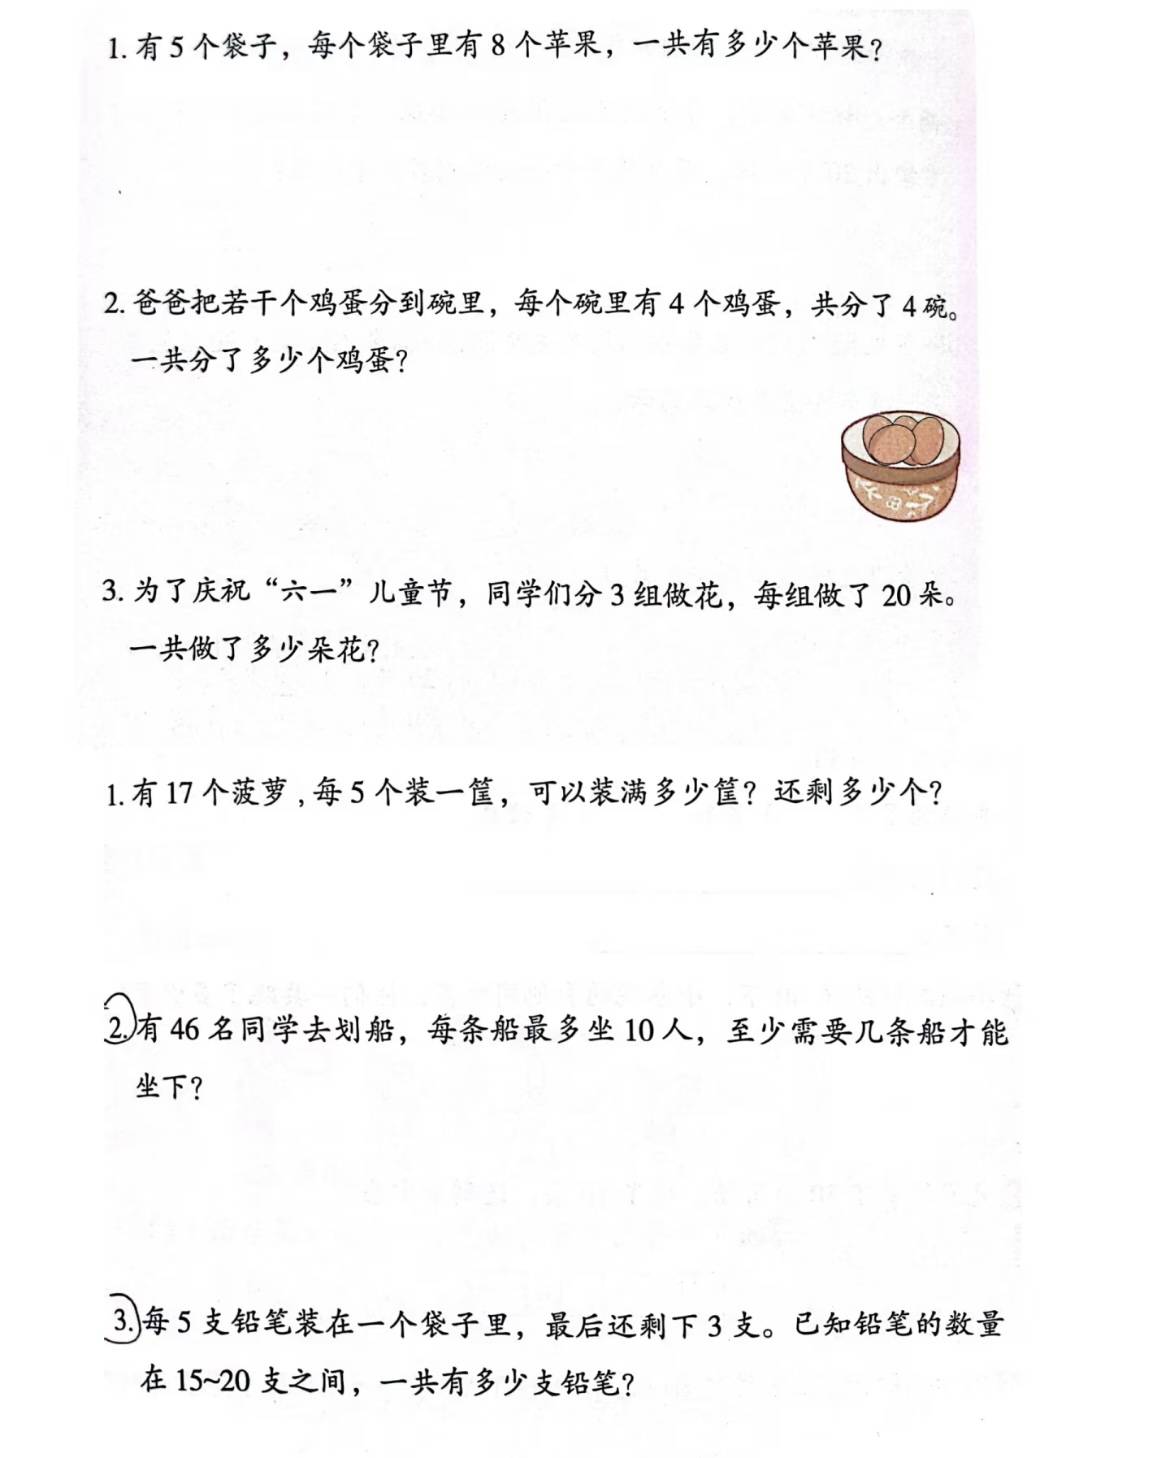 1. 有 5 个袋子，每个袋子里有 8 个苹果，一共有多少个苹果？
2. 爸爸把若干个鸡蛋分到碗里，每个碗里有 4 个鸡蛋，共分了 4 碗。
一共分了多少个鸡蛋？
3. 为了庆祝“六一”儿童节，同学们分 3 组做花，每组做了 20 朵。
一共做了多少朵花？
1. 有 17 个菠萝，每 5 个装一筐，可以装满多少筐？还剩多少个？
2. 有 46 名同学去划船，每条船最多坐 10 人，至少需要几条船才能
坐下？
3. 每 5 支铅笔装在一个袋子里，最后还剩下 3 支。已知铅笔的数量
在 15~20 支之间，一共有多少支铅笔？